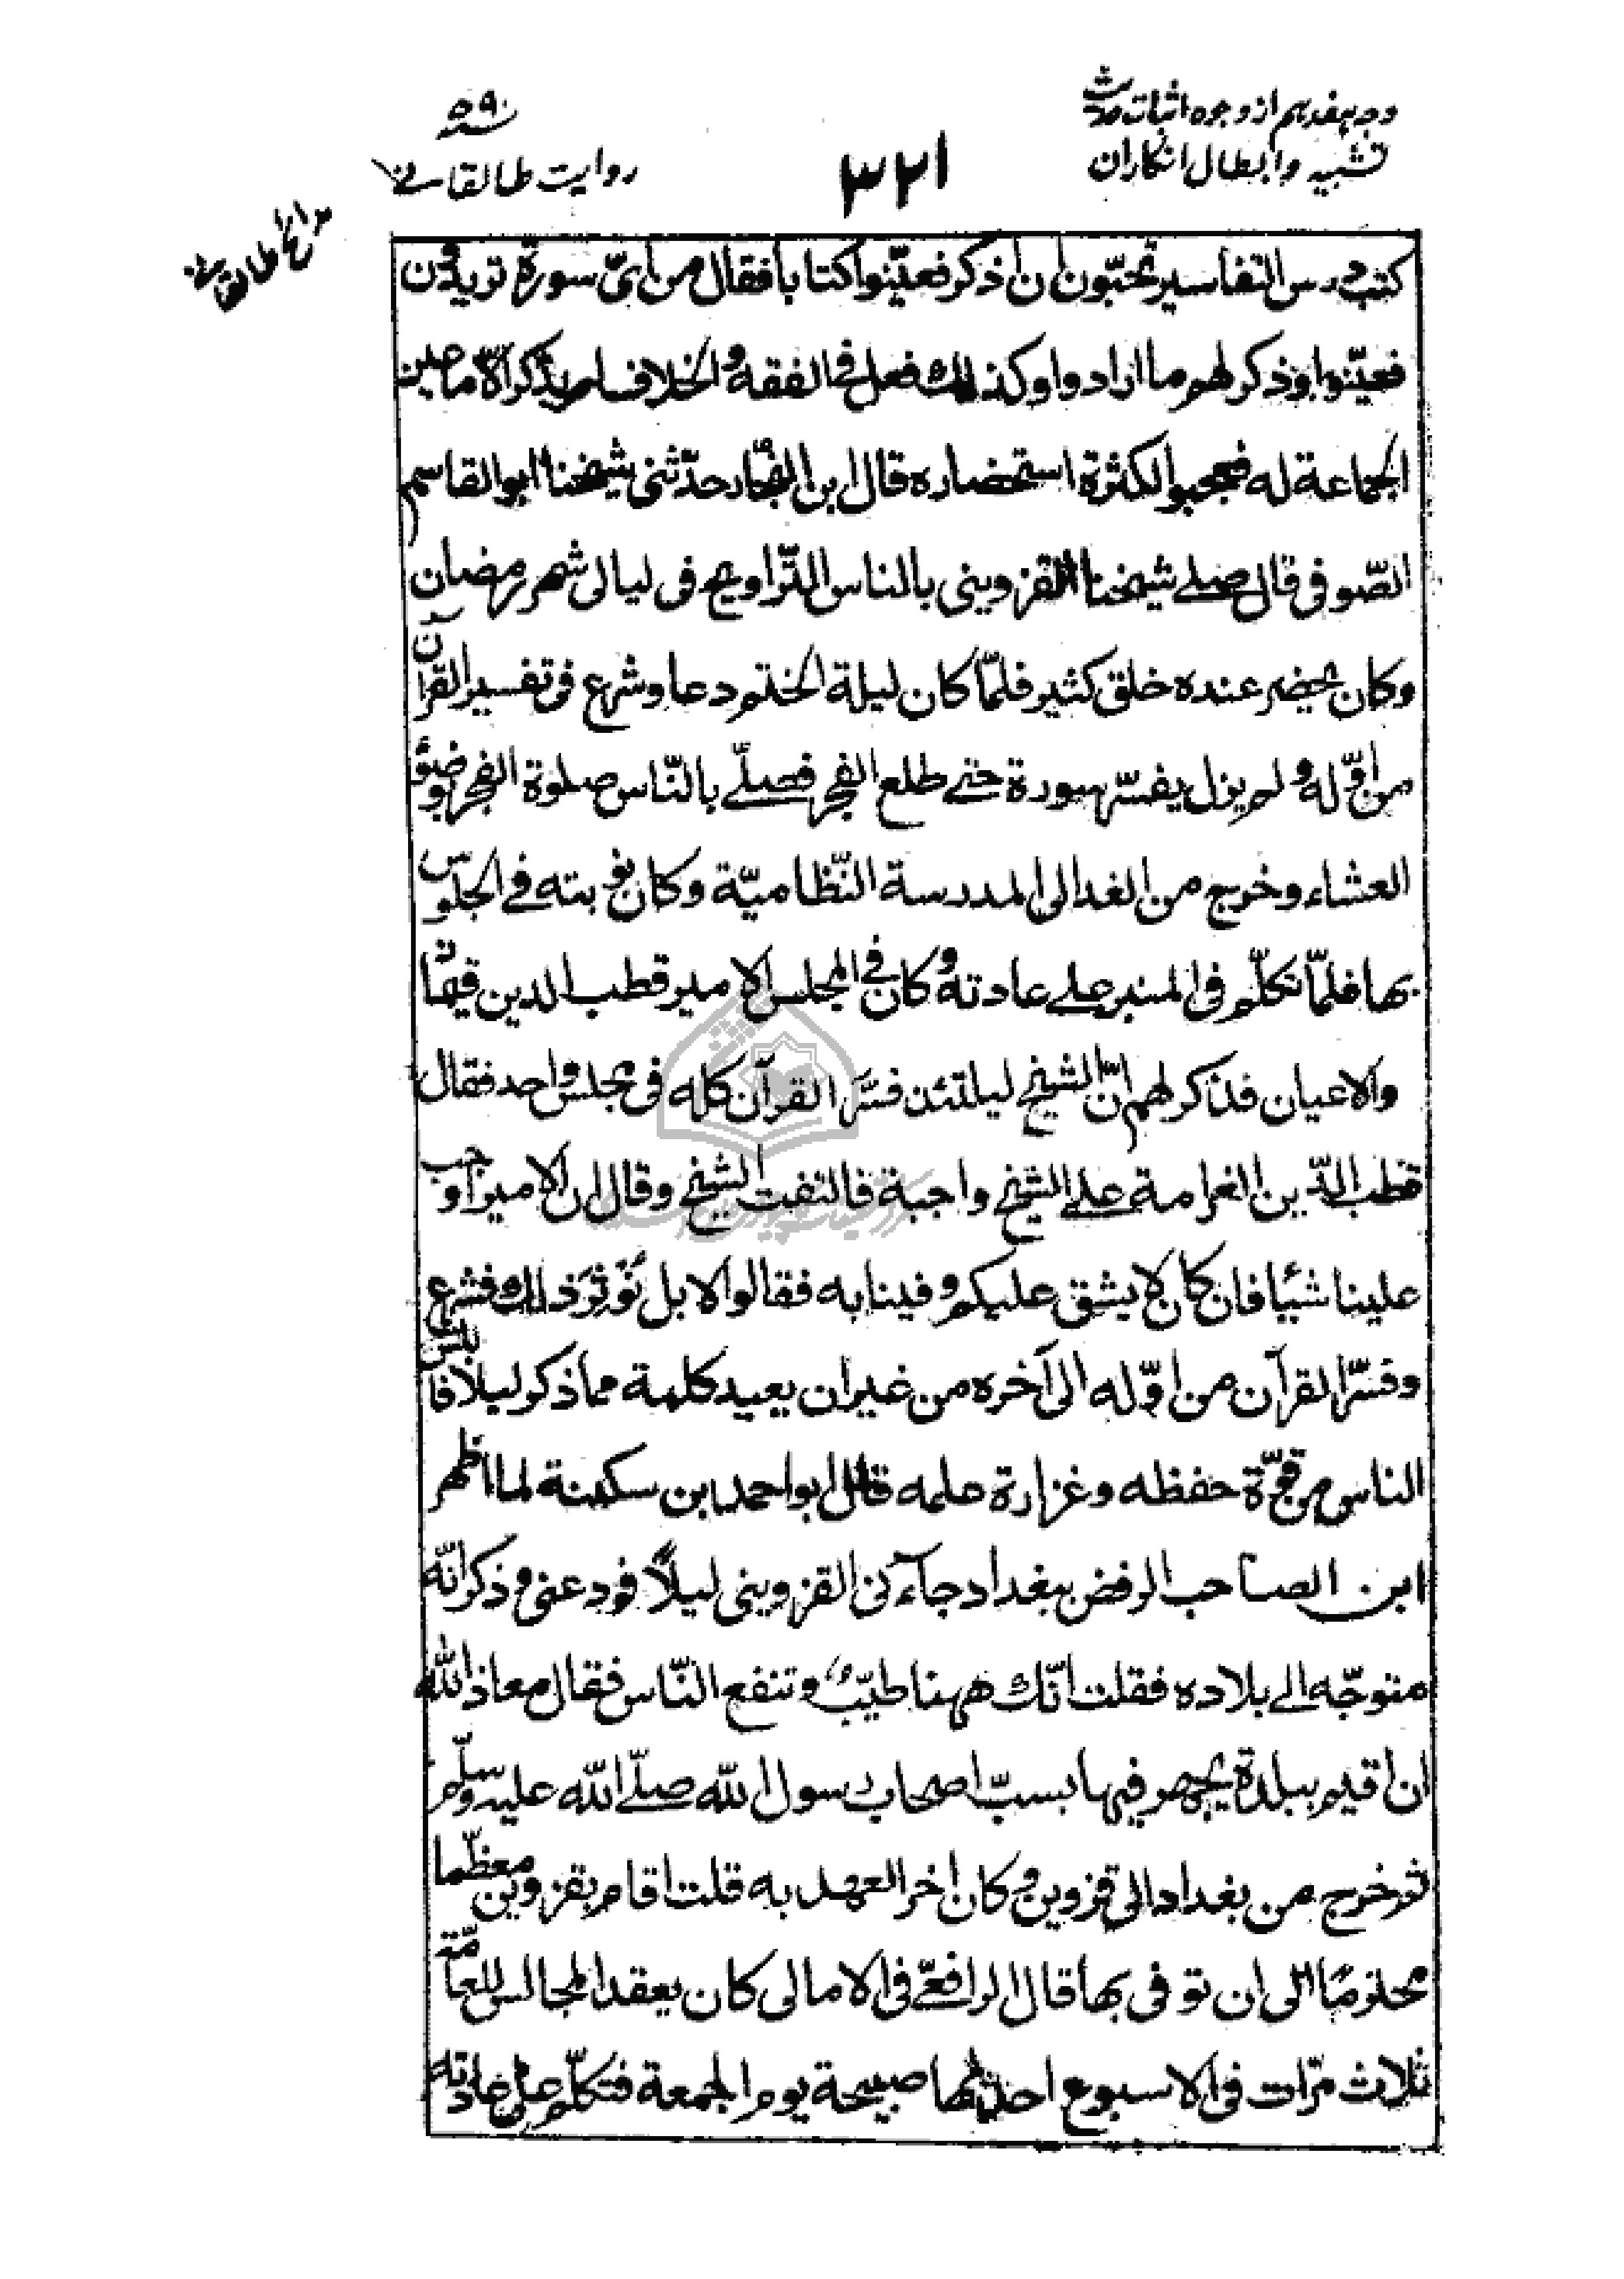 وجه هفدهم از وجوه اثبات حدیث
تشبیه و ابطال انکاران
۳۲۱
۵۹۰ سنه
روایت طالقانے
مدائح طالقانے
كتب درس التفاسير تحبّون ان اذكر فعيّنوا كتابا فقال من ایّ سورة تريدون
فعيّنوا وذكر لهم ما ارادوا وكذلك فعل فى الفقه و الخلاف لم يذكر الّا ما عين
الجماعة له فعجبوا لكثرة استحضاره قال ابن النّجار حدّثنى شيخنا ابو القاسم
الصّوفى قال صلے شيخنا القزوينى بالناس التّراويح فى ليالى شهر رمضان
وكان يحضر عنده خلق كثير فلمّا كان ليلة الختم دعا وشرع فى تفسير القرآن
من اوّله و لم يزل يفسّر سورة سورة حتے طلع الفجر فصلّے بالنّاس صلوة الفجر بوضوء
العشاء وخرج من الغد الى المدرسة النّظاميّة وكان نوبته فے الجلوس
بها فلمّا تكلّم فى المنبر علے عادته و كان فى المجلس الامير قطب الدين قيماز
والاعيان فذكر لهم انّ الشيخ ليلتئذ فسّر القرآن كله فى مجلس واحد فقال
قطب الدّين الغرامة علے الشيخ واجبة فالتفت الشيخ وقال ان الامير اوجب
علينا شيئا فان كان لا يشق عليكم وفينا به فقالوا لا بل نؤثر ذلك فشرع
وفسّر القرآن من اوّله الى آخره من غير ان يعيد كلمة مما ذكر ليلا فابلس
الناس من قوّة حفظه وغزارة علمه قال ابو احمد بن سكينة لما اظهر
ابن الصاحب الرفض ببغداد جاءنى القزوينى ليلًا فودعنى و ذكر انّه
متوجّه الے بلاده فقلت انّك ههنا طيّب وتنفع النّاس فقال معاذ الله
ان اقيم ببلدة يجهر فيها بسبّ اصحاب رسول اللّه صلّے اللّه عليه وسلّم
ثم خرج من بغداد الى قزوين و كان اخر العهد به قلت اقام بقزوين معظّما
محترمًا الى ان توفى بها قال الرافعىّ فى الامالى كان يعقد المجالس للعامّة
ثلاث مرّات فى الاسبوع احدٰها صبيحة يوم الجمعة فتكلّم على عادته